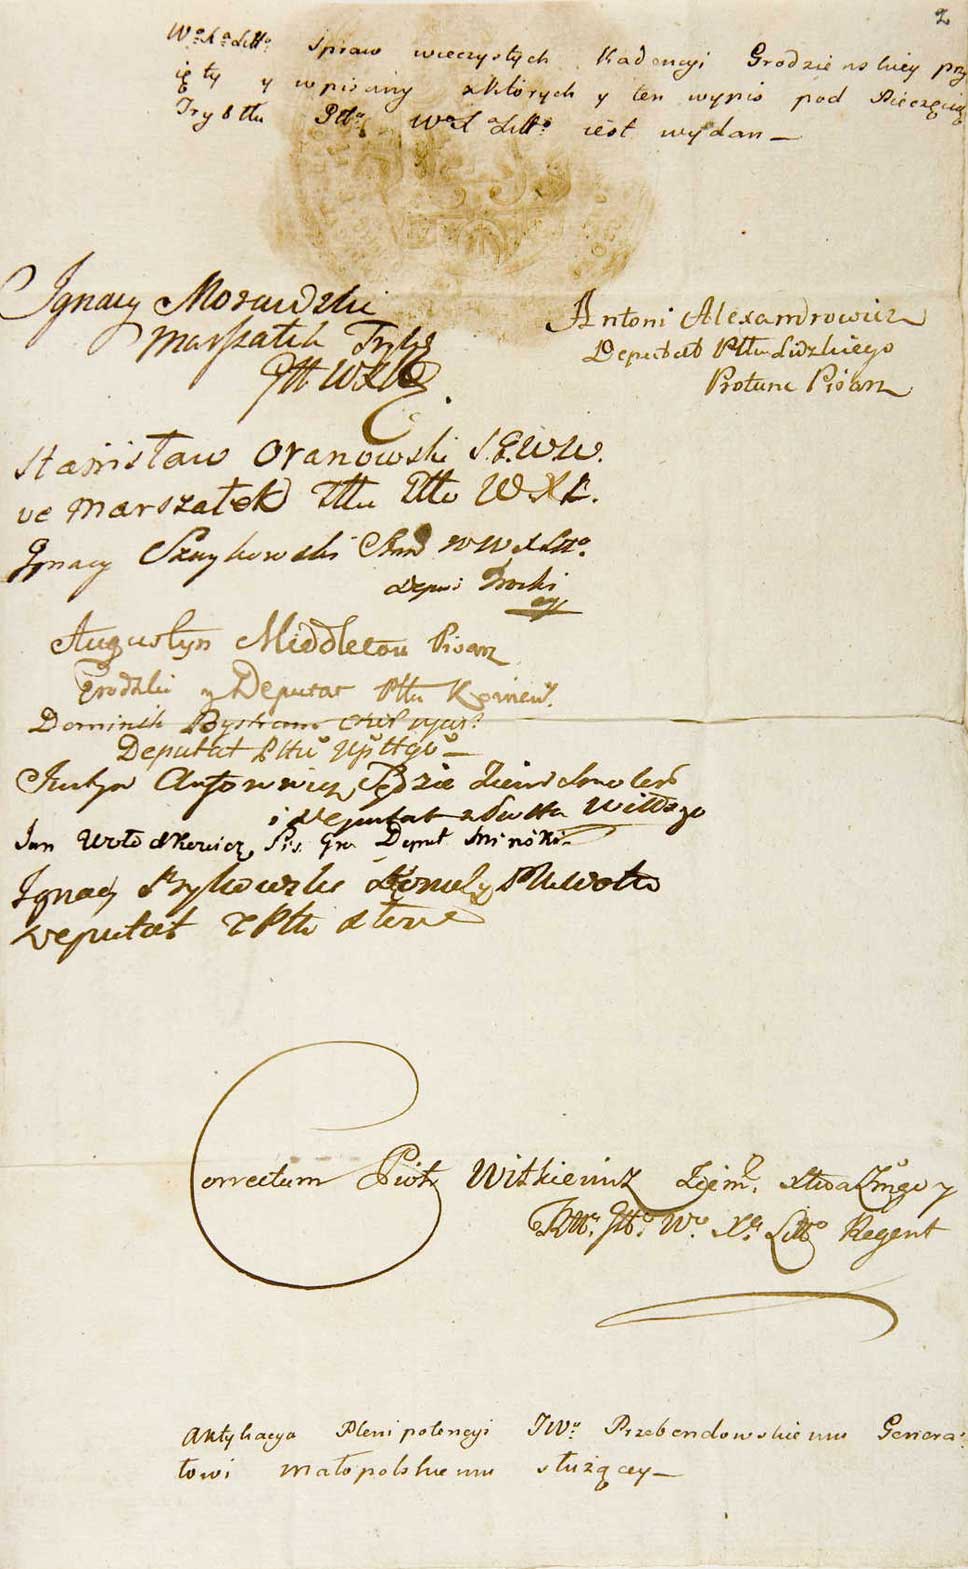 2
Wo Xa Litto Spraw wieczystych Kadencyi Grodzienskiey przy
ięty y wpisany z których y ten wypis pod Pieczęcią
Trybtłu Gtto Wo X Litto iest wydan
Ignacy Morawski
Marszałek Trybu
Gtt WXL
Antoni Alexandrowicz
Deputat Pttu Lidzkiego
Pisarz
Stanisław Oranowski S.G.W.W.
ve Marszałek Ttłu Gtto W X L.
Ignacy Szuykowski W W X Lo
Deput Trocki
Augustyn Middleton Pisarz
Grodzki y Deputat Pttu Kowień.
Dominik Bystram
Deputat Pttu Upttgo
Antonowicz Sędzia Ziem Smoleń
i Deputat z Pwttu Wiłło
Jan Wołodkowicz Pis. Gro Deput Miński
Ignacy
Deputat z Pttu
Correctum Piotr Witkiewicz Ziem. y
Gtto Wo Xa Litto Regent
Aktykacya Plenipotencyi JWu Przebendowskiemu Genera=
łowi Małopolskiemu służącey